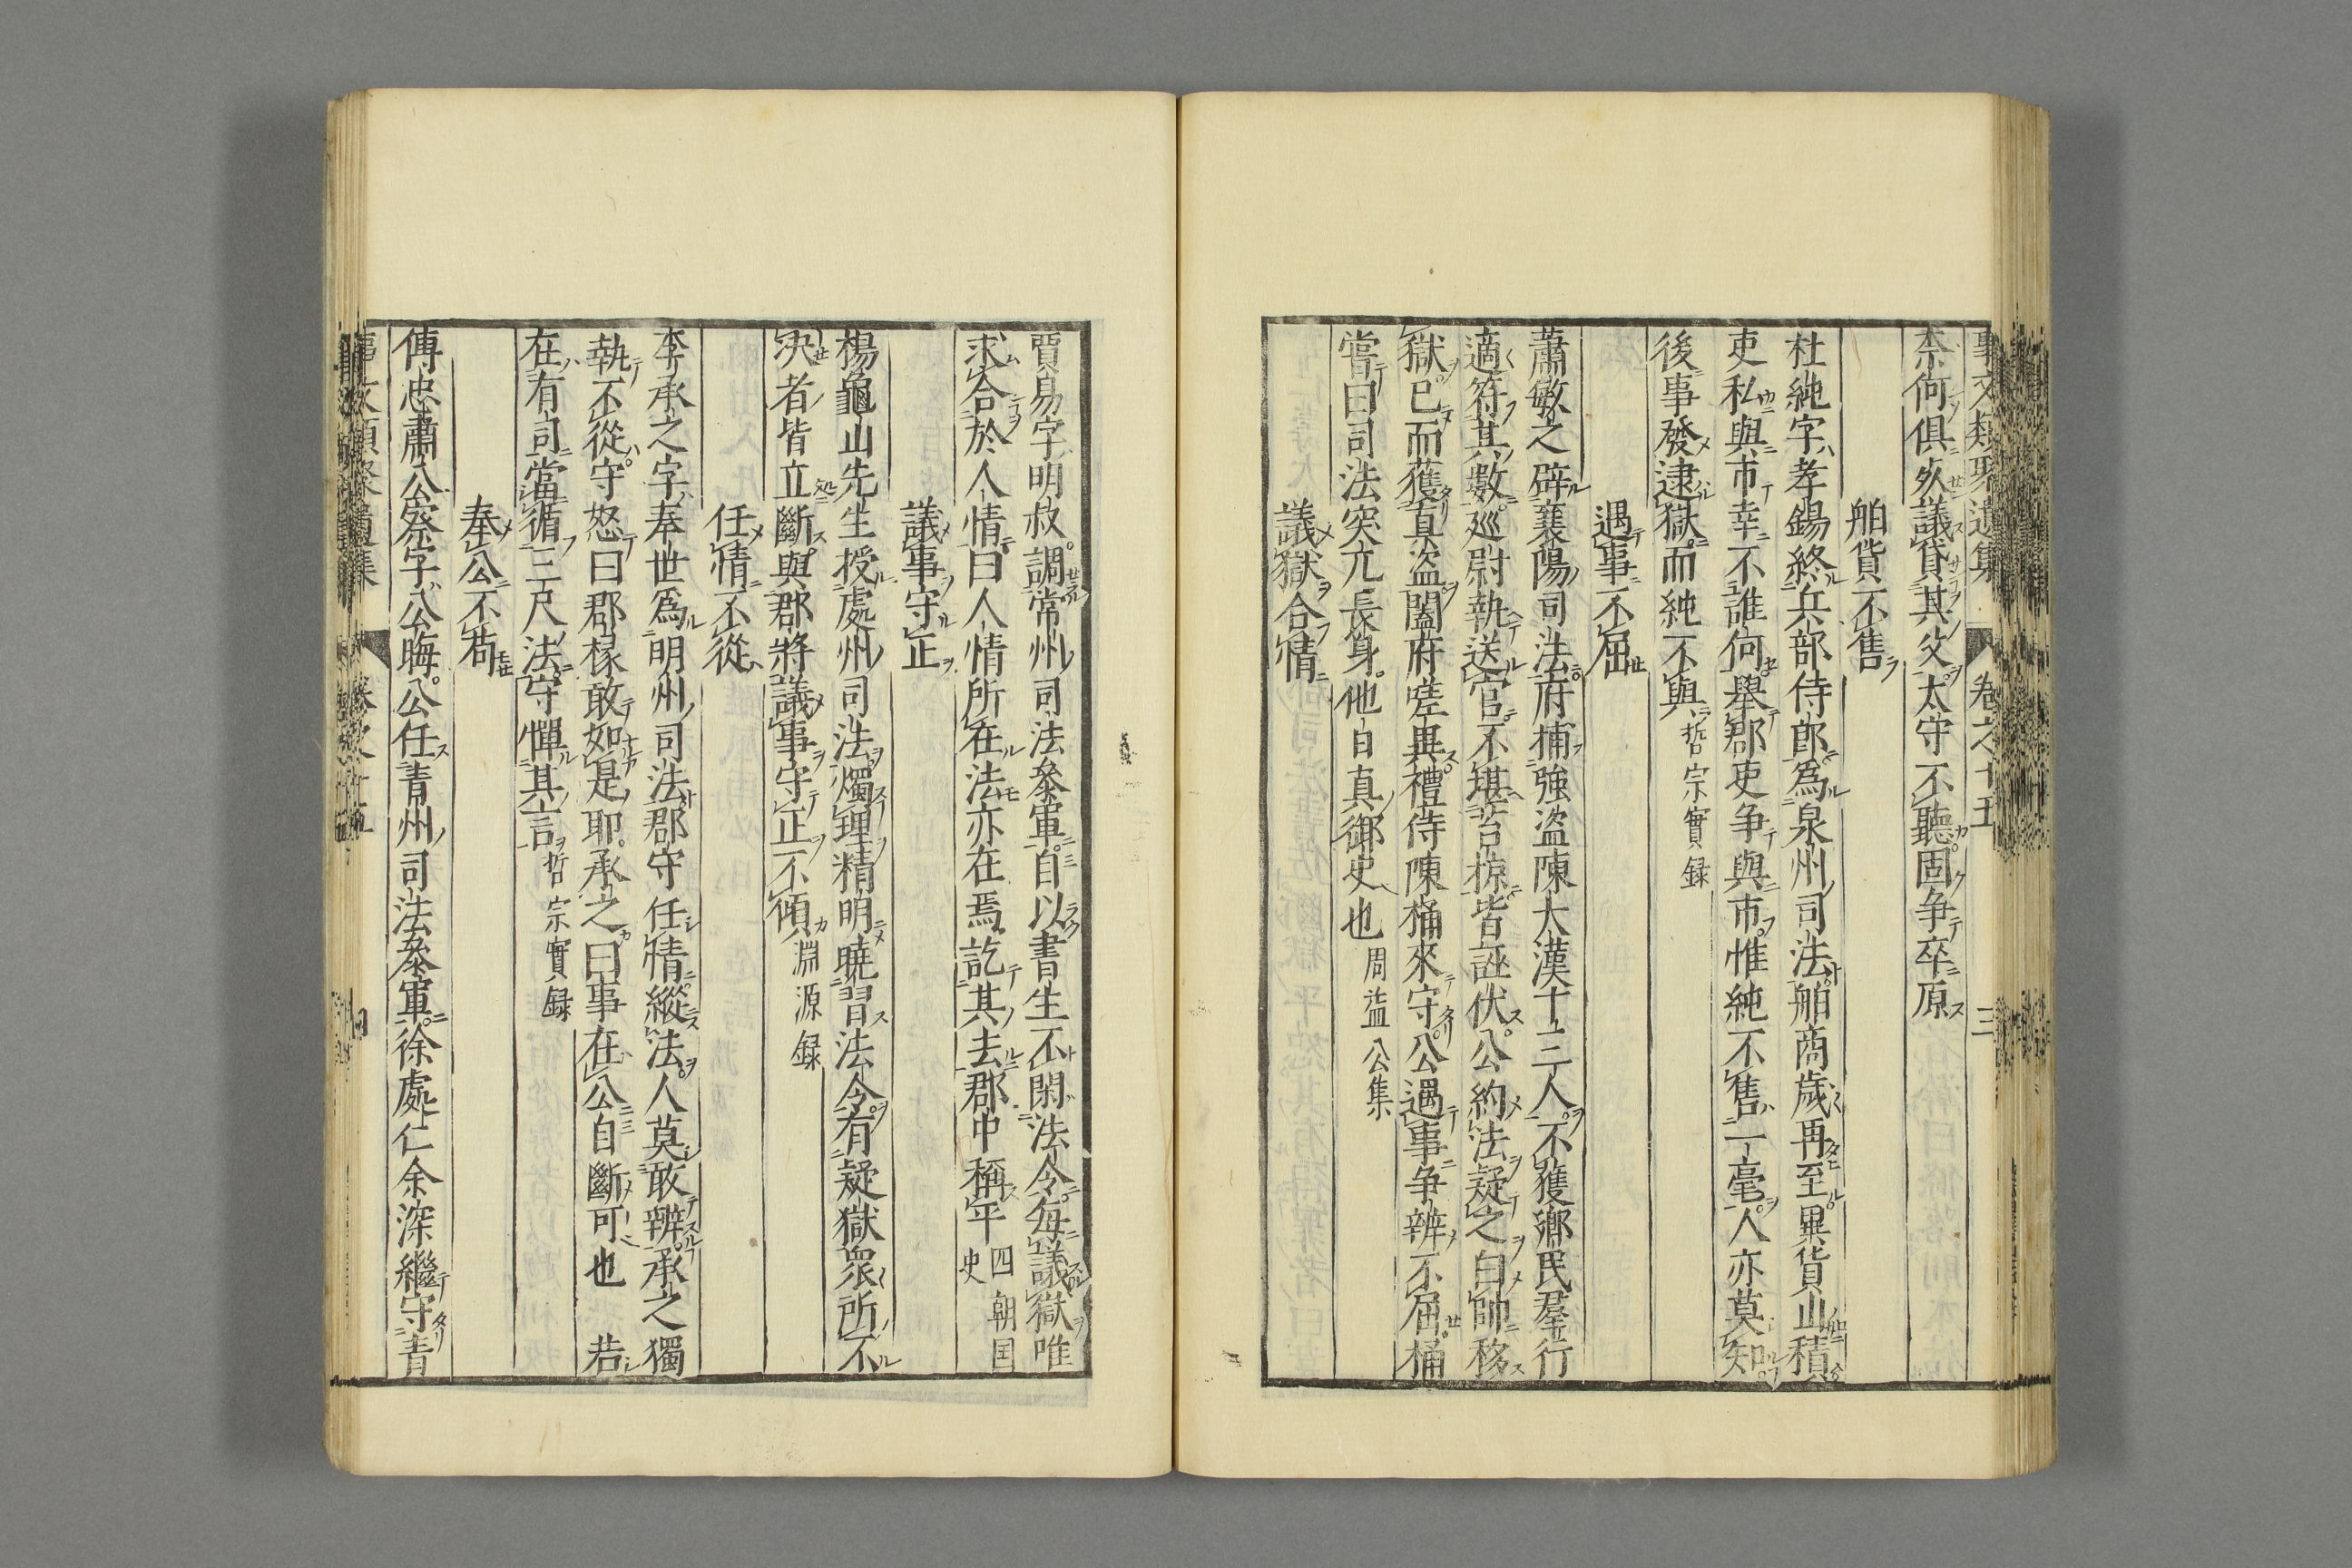 事文類聚遺集 卷之十五 三
柰何俱死議貸其父太守不聽固争卒原
舶貨不售
杜純字孝錫終兵部侍郎為泉州司法舶商歲再至異貨山積
吏私與市幸不誰何舉郡吏争與市惟純不售一毫人亦莫知
後事發逮獄而純不與哲宗實録
遇事不屈
蕭敏之辟襄陽司法府捕強盗陳太漢十三人不獲鄉民羣行
適符其數廵尉執送官不堪苦掠皆誣伏公約法疑之白帥移
獄已而獲真盗闔府嗟異禮侍陳桶來守公遇事争辨不屈桶
嘗曰司法突亢長身他日真御史也周益公集
議獄合情
賈易字明叔調常州司法叅軍自以書生不閑法令每議獄唯
求合於人情曰人情所在法亦在焉訖其去郡中稱平四朝国史
議事守正
楊龜山先生授處州司法燭理精明曉習法令有疑獄衆所不
决者皆立斷與郡將議事守正不傾淵源録
任情不從
李承之字奉世為明州司法郡守任情縱法人莫敢辨承之獨
執不從守怒曰郡椽敢如是耶承之曰事在公自斷可也若
在有司當循三尺法守憚其言哲宗實録
奉公不苟
傅忠肅公察字公晦公任青州司法叅軍徐處仁余深繼守青